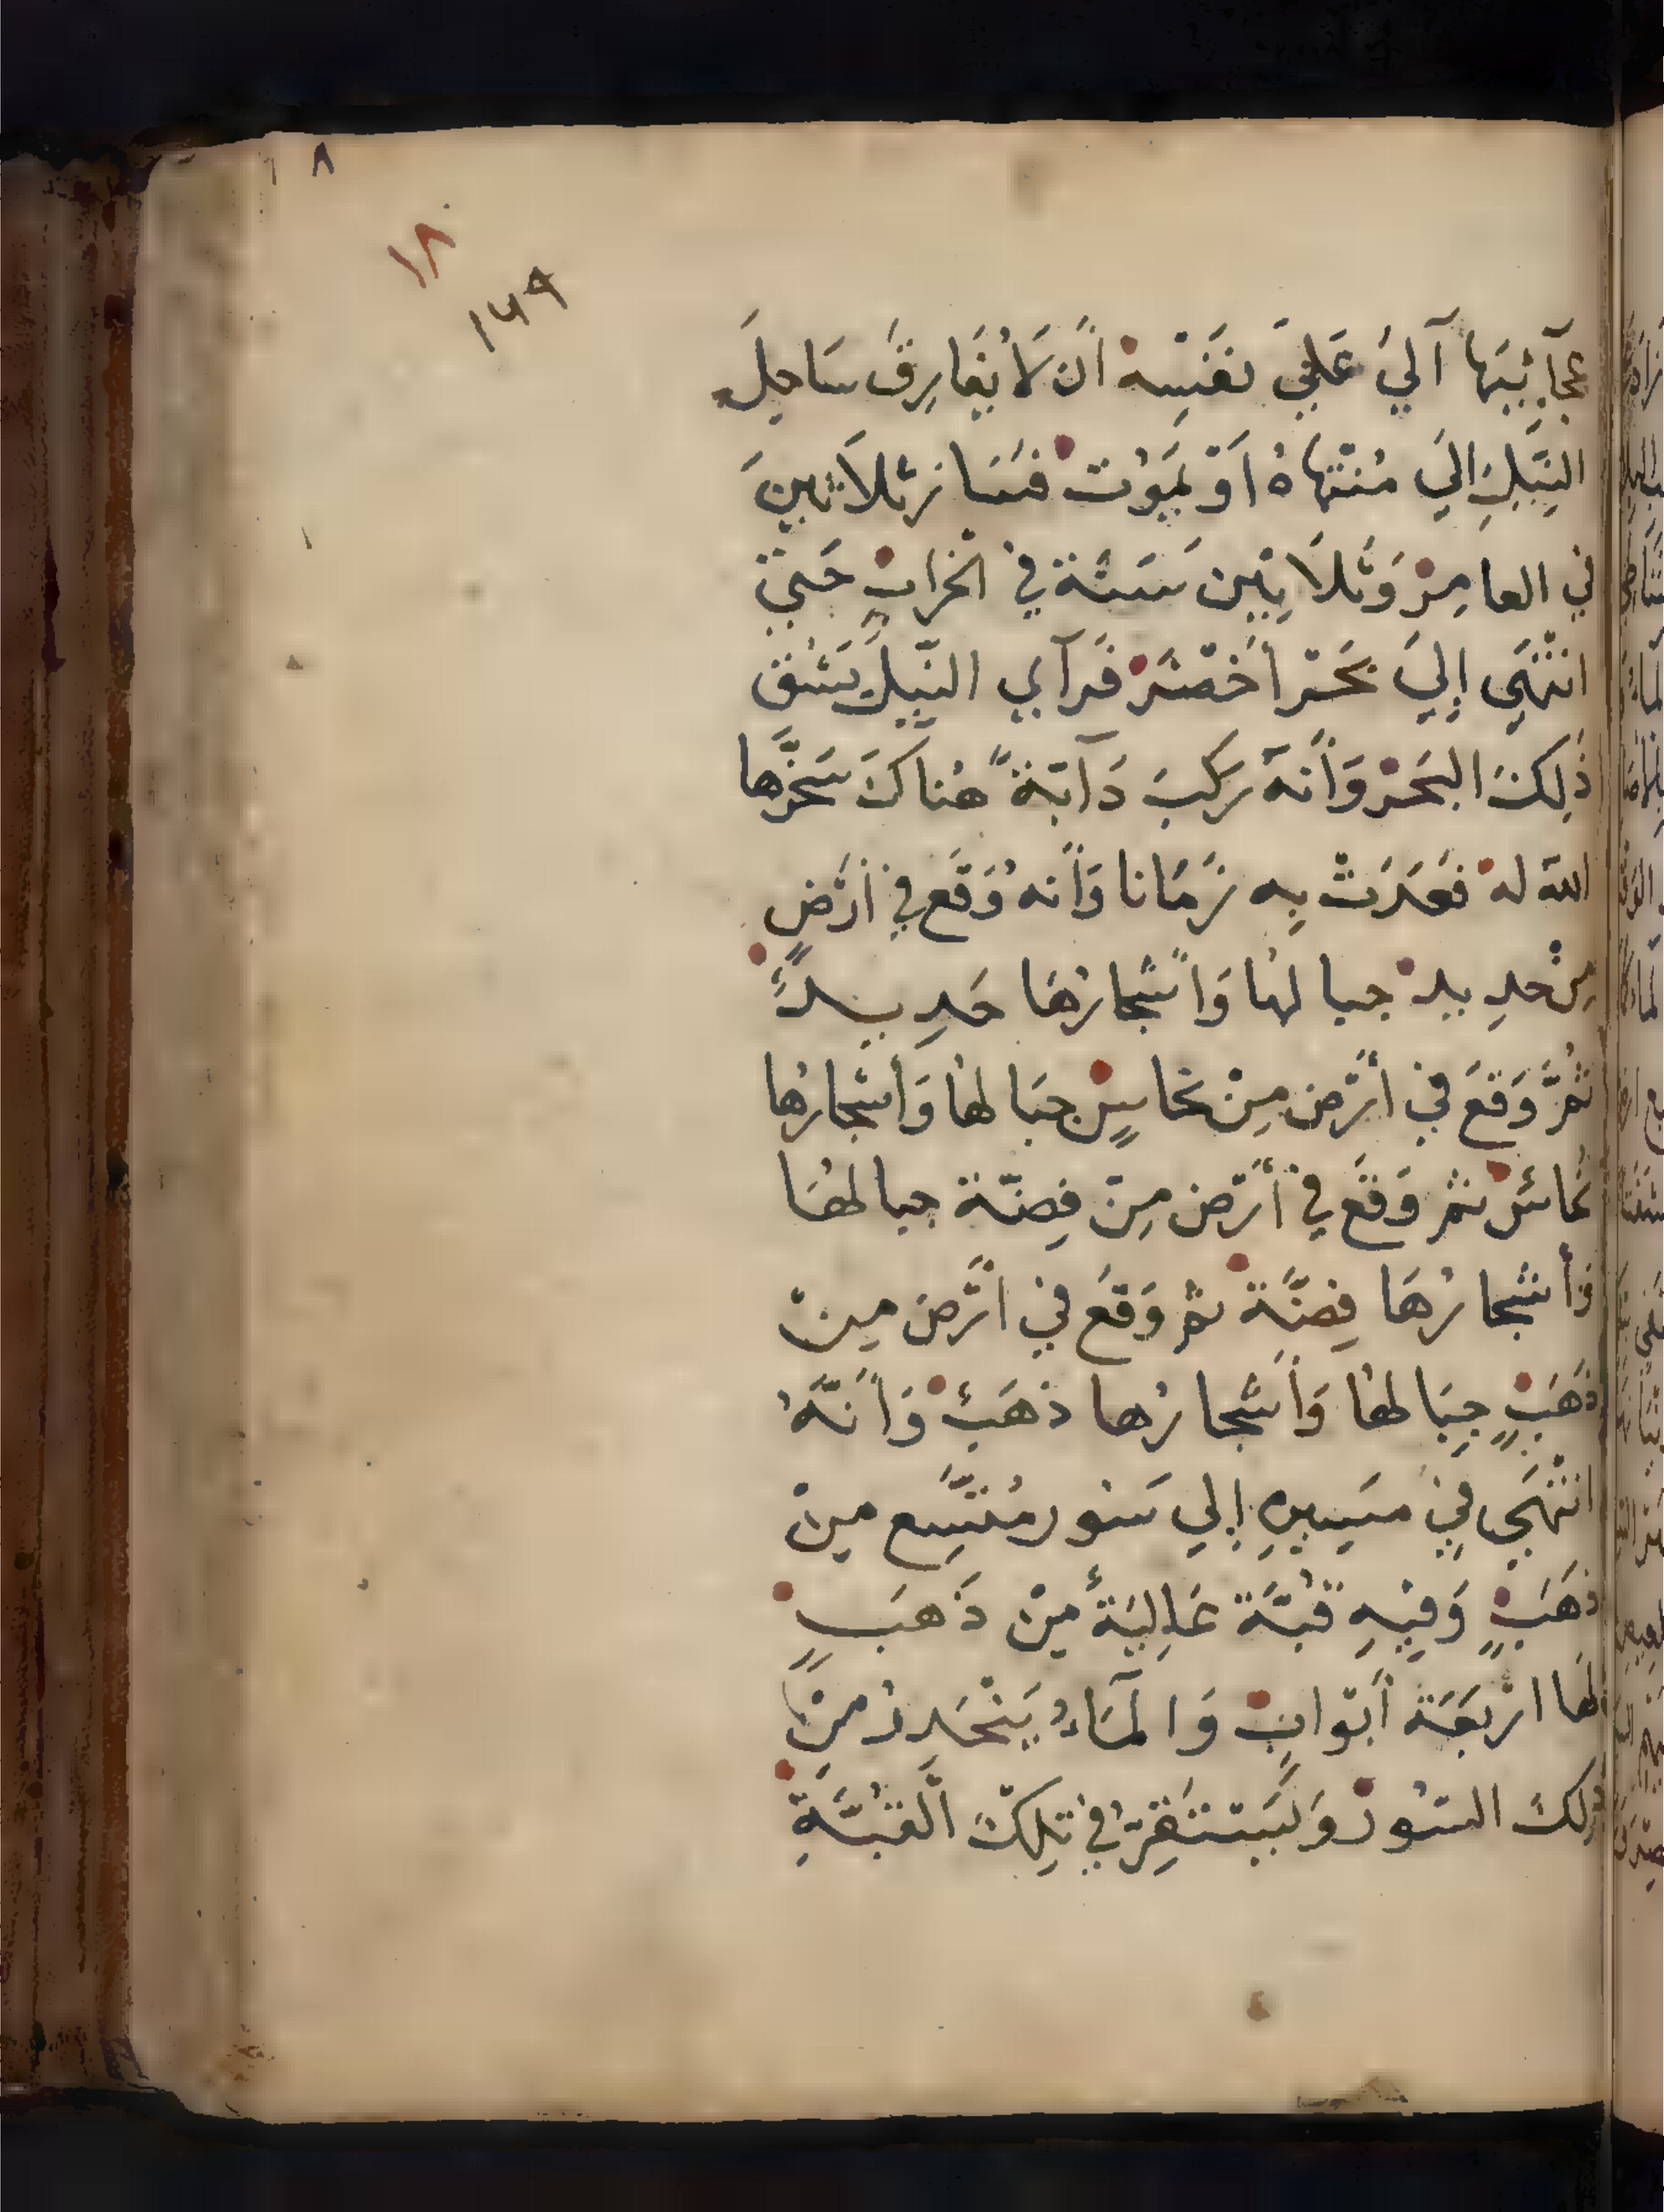 ٨
١٨
١٤٩
عَجَآئِبَهَا آلَيْ عَلَيَ نفَسِه اَن لَا يُفَارِقَ سَاحِلَ
النِيلِ اليَ مُنتَهَاهُ اَوْ يَموُت فسَارَ ثلَاثينَ
في العامِرْ وَثلَاثِينَ سَنة في الخرابِ حَتيَ
انتَهَي إليَ بَحَرْ أخضَرْ فَرآي النِيلَ يَشق
ذَلِكَ البَحَرْ وَأنهَ رَكبَ دَآبَةً هُناكَ سَخرَها
الله لهْ فعَدَتْ بِه زَمَانا وَأنه وَقعَ فِي أرْضٍ
مِن حدِيدْ جبالهَا وَاشْجارُهَا حَدِيدٌ
ثمَّ وَقعَ في أرْض مِنْ نحاسٍ جبَالهَا وَاشجارُها
نُحاسٌ ثم وَقعَ فِي أرْض مِنْ فِضّة جبالهَا
وَأشْجارُهَا فِضَّة ثم وَقعَ في أرْض مِنْ
ذَهَبٍ جِبَالهَا وَأشجارُها ذَهَبٌ وَأنَّهُ
انتَهَي في مَسِيرِهِ إلي سَور مُتسِّع مِنْ
ذَهَبٍ وَفِيهِ قُبّة عَالِيَةٌ مِنْ ذَهَبٍ
لهَا ارْبَعَة أبوَابٍ وَالمآءُ يَنْحَدِرُ مِنْ
ذَلكَ السُورْ وَيَستَقِرّ فِي تِلكَ القُبّةِ